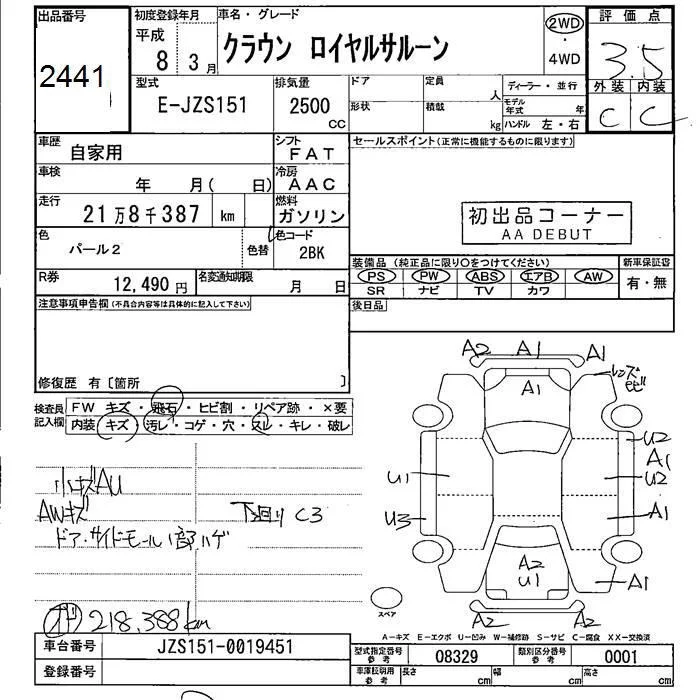 出品番号 初度登録年月 車名・グレード 2WD 評価点
2441 平成 8 3月 クラウン ロイヤルサルーン ・ 4WD 3.5
型式 排気量 ドア 定員 人 ディーラー・並行 外装 内装
E-JZS151 2500 CC 形状 積載 kg モデル年式 年 ハンドル 左・右 C C
車歴 自家用 シフト FAT セールスポイント(正常に機能するものに限ります)
車検 年 月( 日) 冷房 AAC
走行 21万8千387 km 燃料 ガソリン 初出品コーナー
AA DEBUT
色 パール2 色替 色コード 2BK
装備品(純正品に限り○をつけてください) 新車保証書
R券 12,490円 名変通知期限 月 日 PS PW ABS エアB AW 有・無
SR ナビ TV カワ
注意事項申告欄(不具合内容等は具体的に記入して下さい) 後日品
修復歴 有〔箇所 〕
検査員記入欄 FW キズ・飛石・ヒビ割・リペア跡・×要
内装 キズ・汚レ・コゲ・穴・スレ・キレ・破レ
A2 A1 A1
レンズ
A1
U2
A1
U1 U2
U3 A1
A2
U1
A1
A2 A2
小キズAU
AWキズ 下回り C3
ドア・サイドモール1部ハゲ
218,388km
スペア
A-キズ E-エクボ U-凹み W-補修跡 S-サビ C-腐食 XX-交換済
車台番号 JZS151-0019451 型式指定番号 参考 08329 類別区分番号 参考 0001
登録番号 車庫証明用 参考 長さ cm 幅 cm 高さ cm